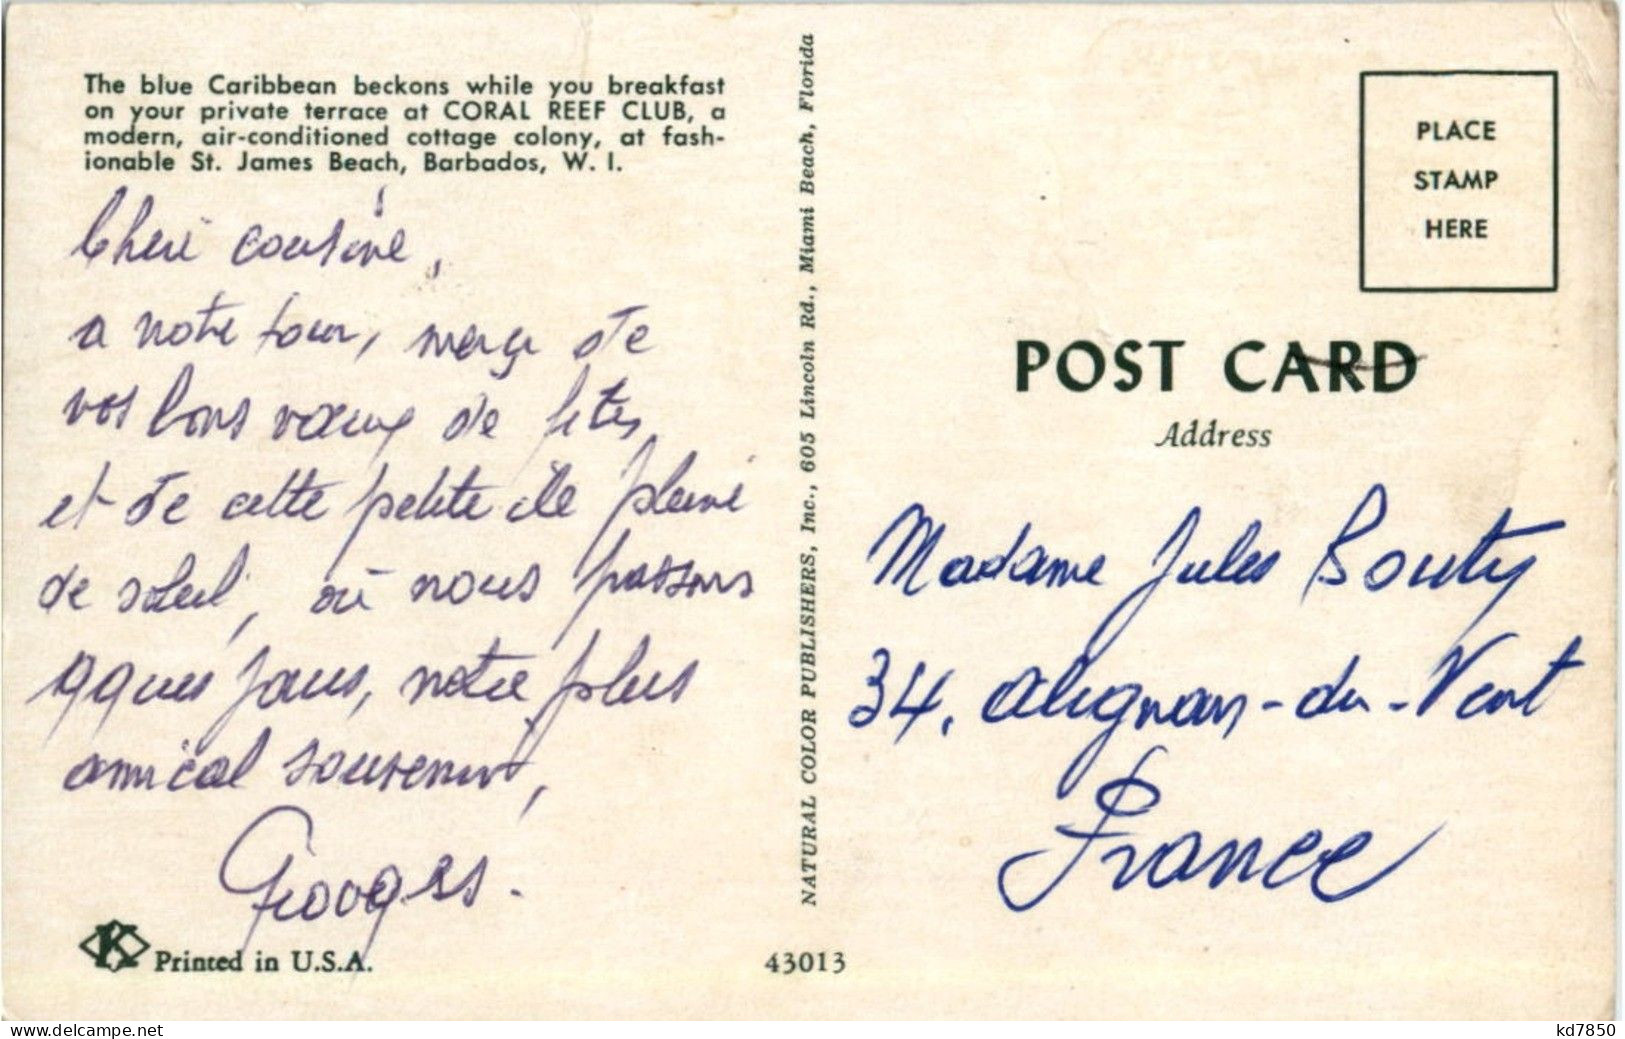 The blue Caribbean beckons while you breakfast
on your private terrace at CORAL REEF CLUB, a
modern, air-conditioned cottage colony, at fash-
ionable St. James Beach, Barbados, W. I.
Chère cousine,
a notre tour, merci de
vos bons vœux de fêtes
et de cette petite île pleine
de soleil, où nous passons
qques jours, notre plus
amical souvenir,
Georges.
Printed in U.S.A.
NATURAL COLOR PUBLISHERS, Inc., 605 Lincoln Rd., Miami Beach, Florida
43013
PLACE
STAMP
HERE
POST CARD
Address
Madame Jules Bouty
34, Alignan-du-Vent
France
delcampe.net
kd7850